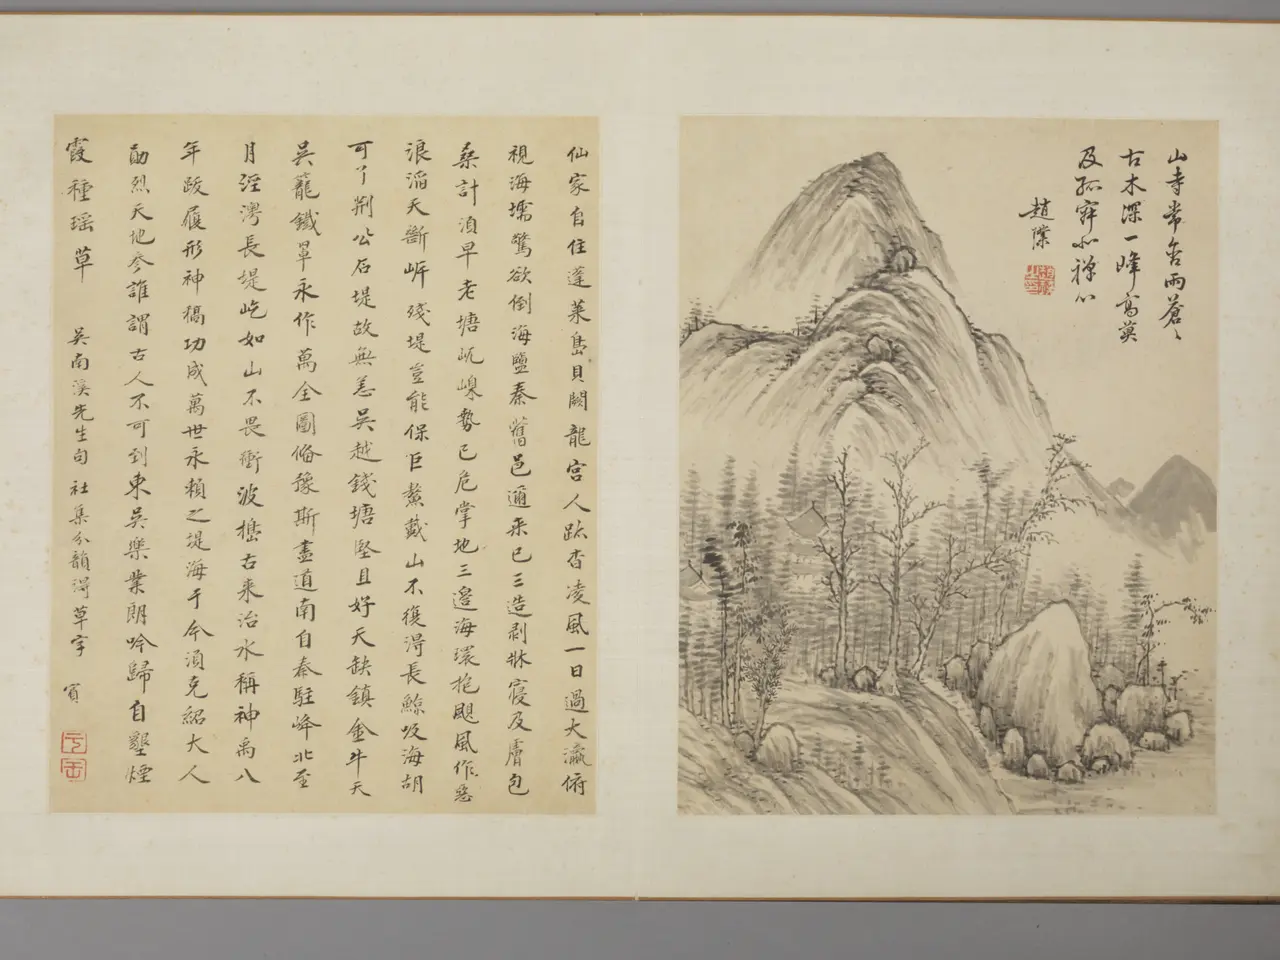 山寺常含雨蒼〻
古木深一峰高莫
及孤寂北禪心
趙澄
仙家自住蓬萊島貝闕龍宮人跡杳凌風一日過大瀛俯
視海壖驚欲倒海鹽秦舊邑邇來已三造剥牀寢及膚包
桑計須早老塘岏嵲勢已危掌地三邊海環抱颶風作惡
浪滔天斷岸殘堤豈能保巨鰲戴山不復得長鯨吸海胡
可了荆公石堤故無恙吳越錢塘堅且好天缺鎮金牛天
吳籠鐵罩永作萬全圖脩豫斯盡道南自秦駐峰北至
月涇灣長堤屹如山不畏衝波擣古來治水稱神禹八
年跋履形神槁功成萬世永賴之堤海于今須克紹大人
勛烈天地參誰謂古人不可到東吳樂業朗吟歸自墾煙
霞種瑶草 吳南溪先生句 社集分韻得草字 賓